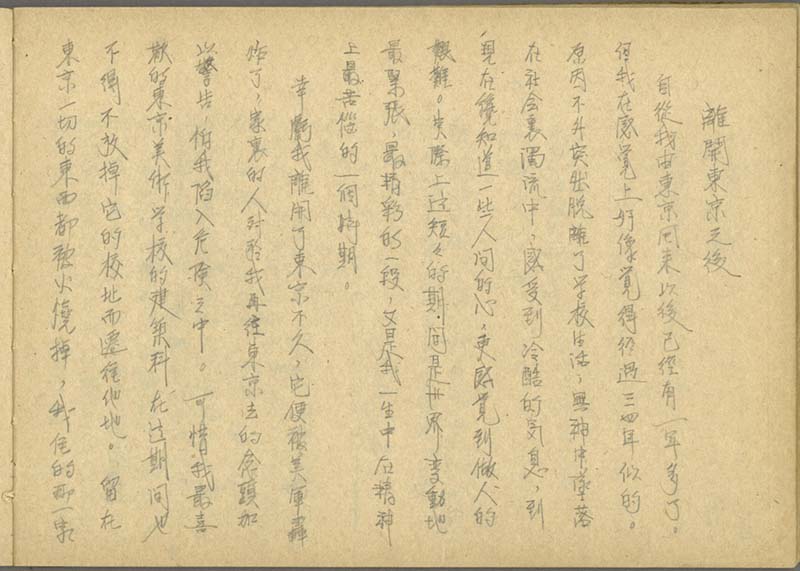 離開東京之後
自從我由東京回來以後已經有一年多了。
但我在感覺上好像覺得經過三四年似的。
原因不外突出脫離了学校生活，無神中墜落
在社会裏濁流中，感受到冷酷的気息，到
現在纔知道一些人间的心，更感覚到做人的
艱難。实際上这短々的期间是世界变動地
最緊張，最精彩的一段，又是我一生中在精神
上最苦惱的一個時期。
幸虧我離開了東京不久，它便被美軍轟
炸了，家裏的人対於我再往東京去的念頭加
以警告，怕我陷入危険之中。可惜我最喜
歡的東京美術学校的建築科在这期间也
不得不放掉它的校址而遷往他地。留在
東京一切的東西都被火燒掉，我住的那一家